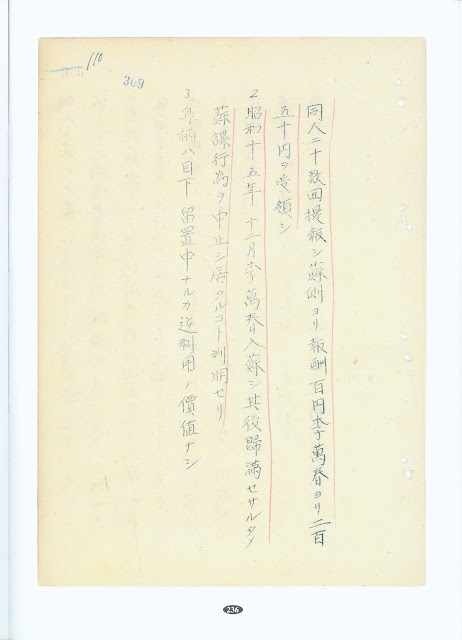 110
309
同人ニ十数回提報シ蘇側ヨリ報酬百円李萬春ヨリ二百
五十円ヲ受領シ
2 昭和十五年十二月李萬春入蘇シ其後歸滿セサルタメ
蘇諜行為ヲ中止シ居タルコト判明セリ
3 身柄ハ目下留置中ナルカ逆利用ノ價値ナシ
236